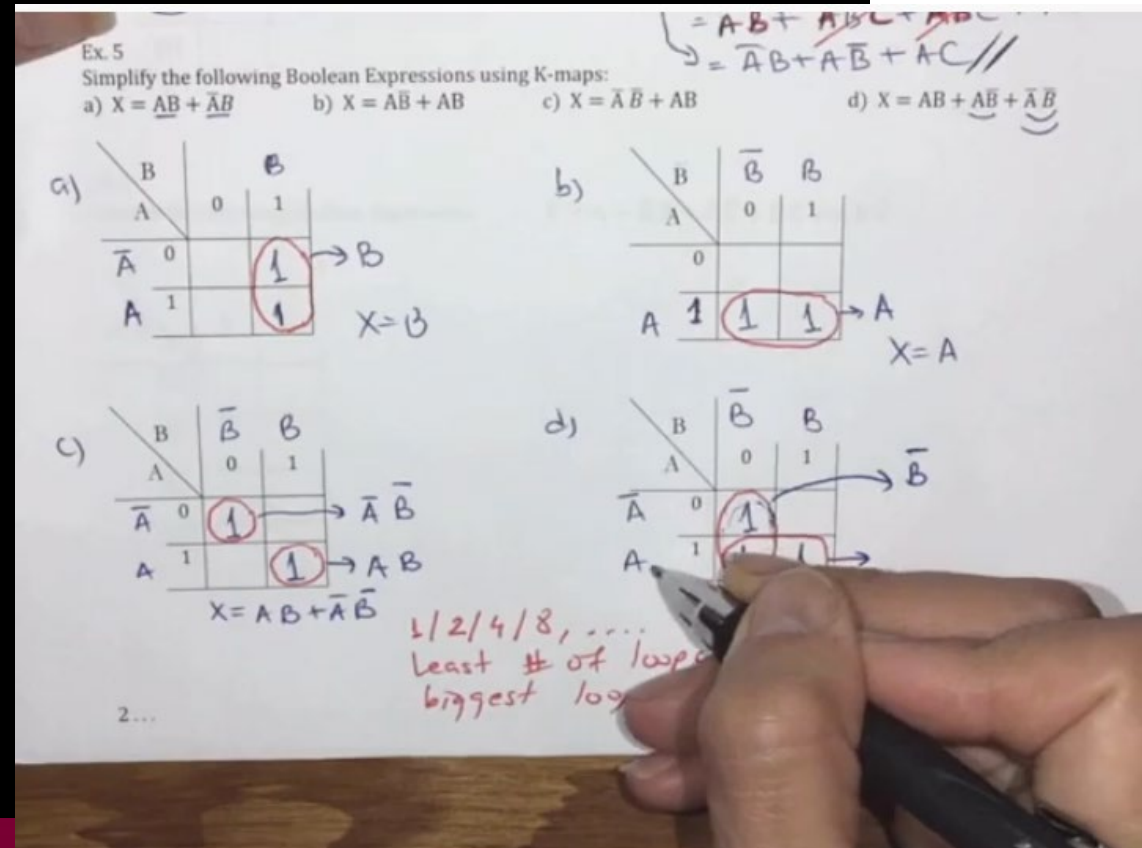 = AB + ABC + ABC
= A̅B + AB̅ + AC //
Ex. 5
Simplify the following Boolean Expressions using K-maps:
a) X = AB + A̅B b) X = AB̅ + AB c) X = A̅ B̅ + AB d) X = AB + AB̅ + A̅ B̅
a)
B B
A 0 1
A̅ 0 1 → B
A 1 1 X = B
b)
B B̅ B
A 0 1
0
A 1 1 1 → A
X = A
c)
B B̅ B
A 0 1
A̅ 0 1 → A̅ B̅
A 1 1 → A B
X = A B + A̅ B̅
d)
B B̅ B
A 0 1 → B̅
A̅ 0 1
A 1 1 1 →
1/2/4/8, ....
Least # of loops
biggest
2...